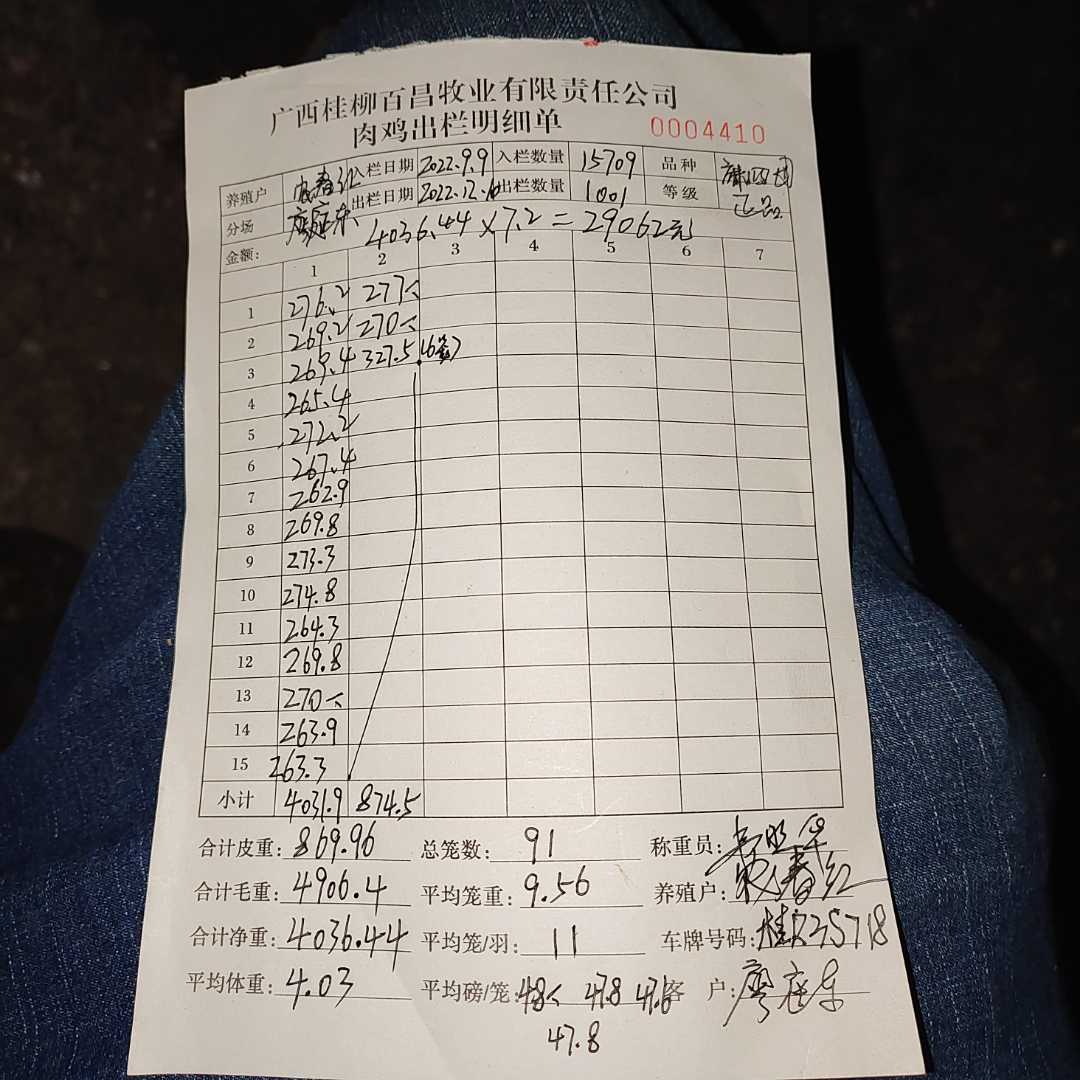 广西桂柳百昌牧业有限责任公司
肉鸡出栏明细单 0004410
养殖户 入栏日期 2022.9.9 入栏数量 15709 品种
分场 出栏日期 2022.12. 出栏数量 1001 等级 正品
金额: 4036.44×7.2=29062元
1 2 3 4 5 6 7
1 276.2 277
2 269.2 270
3 269.4 327.5 (6笼)
4 265.4
5 272.2
6 267.4
7 262.9
8 269.8
9 273.3
10 274.8
11 264.3
12 269.8
13 270
14 263.9
15 263.3
小计 4031.9 874.5
合计皮重: 869.96 总笼数: 91 称重员:
合计毛重: 4906.4 平均笼重: 9.56 养殖户:
合计净重: 4036.44 平均笼/羽: 11 车牌号码:
平均体重: 4.03 平均磅/笼: 48 47.8 47.6 客户: 廖庭东
47.8